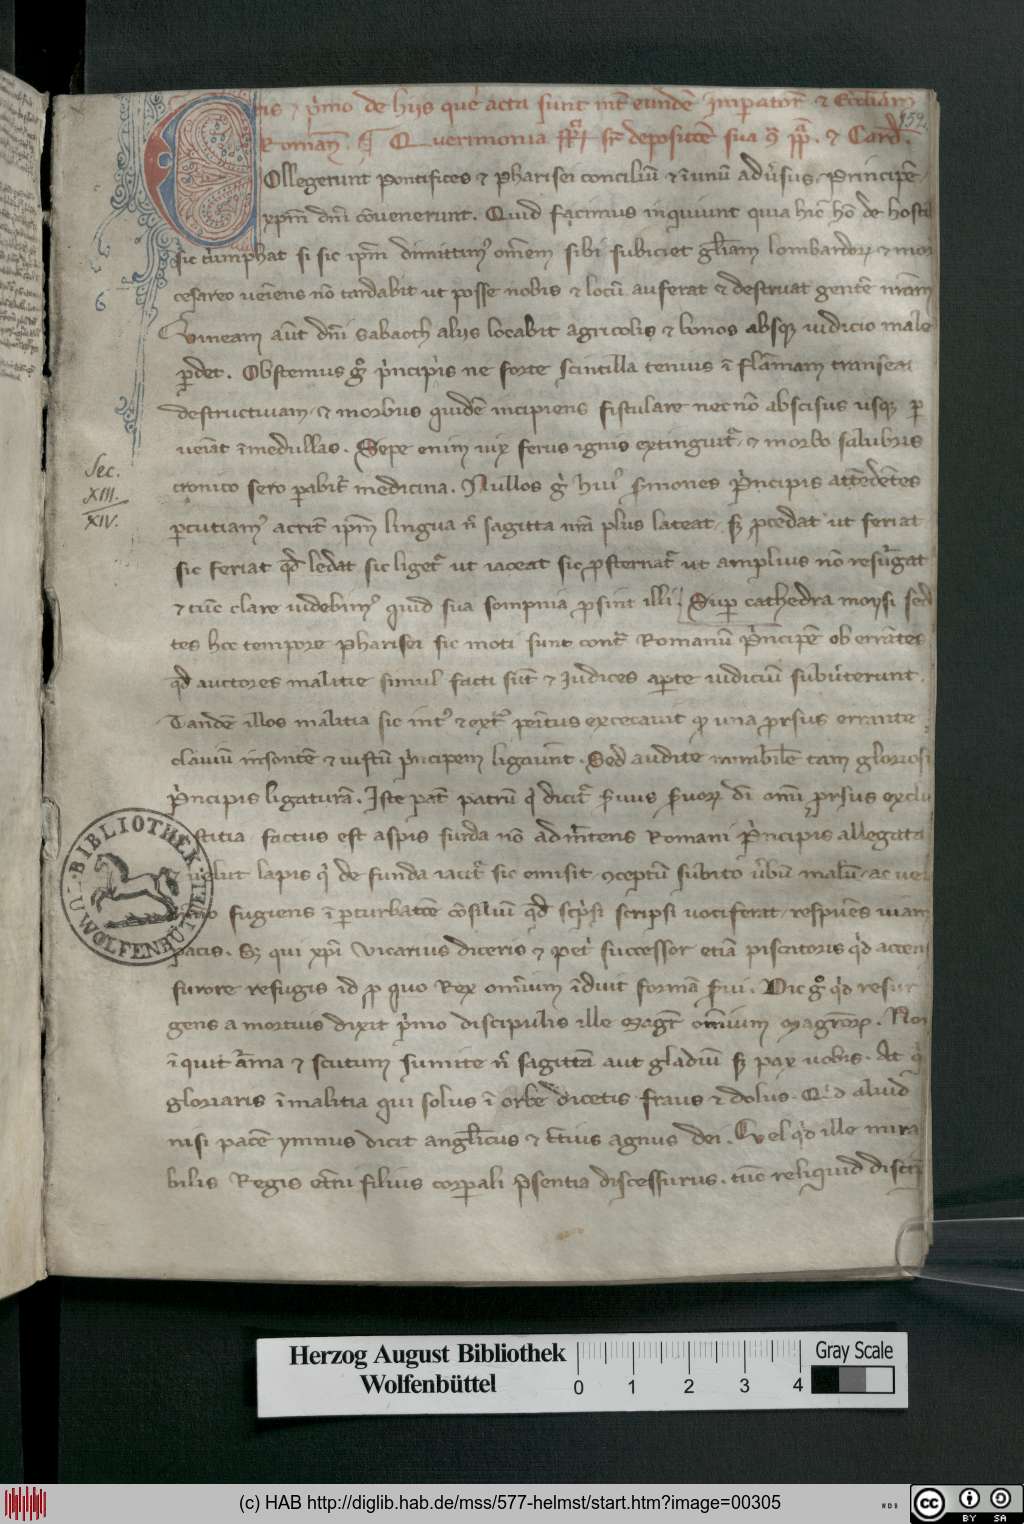 tis & p'mo de hijs que acta sunt int' eundē Imp̄atorē & Eccl̄iam
Romanā. ¶ Querimonia sup deposicōe sua & Card'.
159.
Ollegerunt pontifices & pharisei conciliū & ī unū adv'sus Principē
xp̄m dn̄i cōvenerunt. Quid facimus inquiunt quia hic hō de hosti
sic triumphat si sic ip̄m dimittim' om̄em sibi subiciet gl̄iam lombardor' & mor
cesareo veniens nō tardabit ut posse nobis & locū auferat & destruat gentē nr̄am
Vineam aūt dn̄i sabaoth alijs locabit agricolis & bonos absq' iudicio male
p̄det. Obstemus g° p'ncipijs ne forte scintilla tenuis ī flāmam transeat
destructivam & morbus quidē incipiens fistulare necnō abscisus usq' p
veīat ī medullas. Sepe enim vix ferus ignis extinguit' & morbo salubris
cronico sero p̄abit' medicina. Nullos g' hui' s'mones P'ncipis attēdētes
p̄cutiam' acrit' ip̄m lingua n' sagitta nr̄a plus lateat s' p̄cedat ut feriat
sic feriat qd' ledat sic liget' ut iaceat sic p̄sternat' ut amplius nō resurgat
& tūc clare videbim' quid sua sompnia p̄sint illi. Sup cathedra moysi sedē
tes hoc tempore pharisei sic moti sunt cont' Romanū P'ncipē ob errātes
qd' auctores malitie simul facti sūt & Iudices ap̄te iudiciū subv'terunt.
Tandē illos malitia sic int' & ext' penitus excecavit q' una p̄rsus errante
claviū insontē & iustū p'ncipem ligaviūt. Sed audite mirabilē tam gloriosi
P'ncipis ligaturā. Iste pat' patrū q' dicit' s'vus s'vor' dī om̄i p̄rsus exclu
stitia factus est aspis surda nō admittens Romani P'ncipis allegata
& velut lapis q' de funda iacit' sic emisit 9ceptū subito v'bū malū ac vel
fugiens ī p̄turbatōe cōsiliū qd' scp'si scripsi vociferat' respuēs viam
pacis. S' qui xp̄i Vicarius diceris & Pet' successor etiā piscatoris q'd accen
furore refugis id p quo Rex om̄ium īduit formā s'vi. Dic g° q'd resur
gens a mortuis dixit p'mo discipulis ille Magr' om̄ium Magror'. Non
inquit ar̄ma & scutum sumite n' sagittā aut gladiū s' pax vobis. At q'
gloriaris ī malitia qui solus ī orbe dicetis fraus & dolus. Q'd aliud
nisi pacē ymnus dicit angl̄icus & t'cius agnus dei. Vel q'd ille mira
bilis Regis et'ni filius corp̄ali p̄sentia discessurus. tūc reliquid discip
Sec.
XIII.
XIV.
BIBLIOTHEK
U. WOLFENBÜTTEL
Herzog August Bibliothek
Wolfenbüttel
0 1 2 3 4
Gray Scale
(c) HAB http://diglib.hab.de/mss/577-helmst/start.htm?image=00305
WDB
cc BY SA